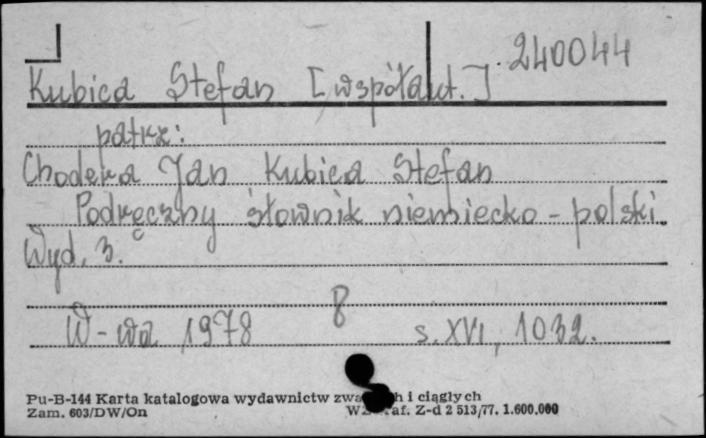 240044
Kubica Stefan [współaut.]
patrz:
Chodera Jan Kubica Stefan
Podręczny słownik niemiecko-polski.
Wyd. 3.
8
W-wa 1978 s. XVI, 1032.
Pu-B-144 Karta katalogowa wydawnictw i ciągłych
Zam. 603/DW/On Z-d 2 513/77. 1.600.000